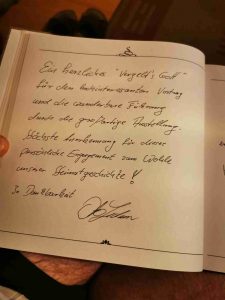 Ein herzliches "Vergelt's Gott"
für den hochinteressanten Vortrag
und die wunderbare Führung
durch die großartige Ausstellung.
Höchste Anerkennung für dieses
persönliche Engagement zum Wohle
unserer Heimatgeschichte!
In Dankbarkeit